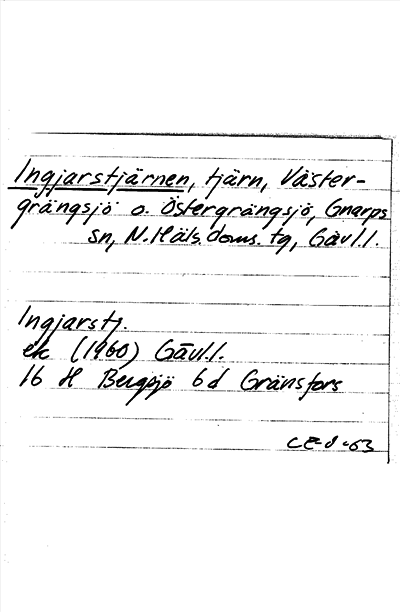 Ingjarstjärnen, tjärn, Väster-
grängsjö o. Östergrängsjö, Gnarps
sn, N. Häls. doms. tg, Gävl.l.
Ingjarstj.
ek (1960) Gävl.l.
16 H Bergsjö 6d Gränsfors